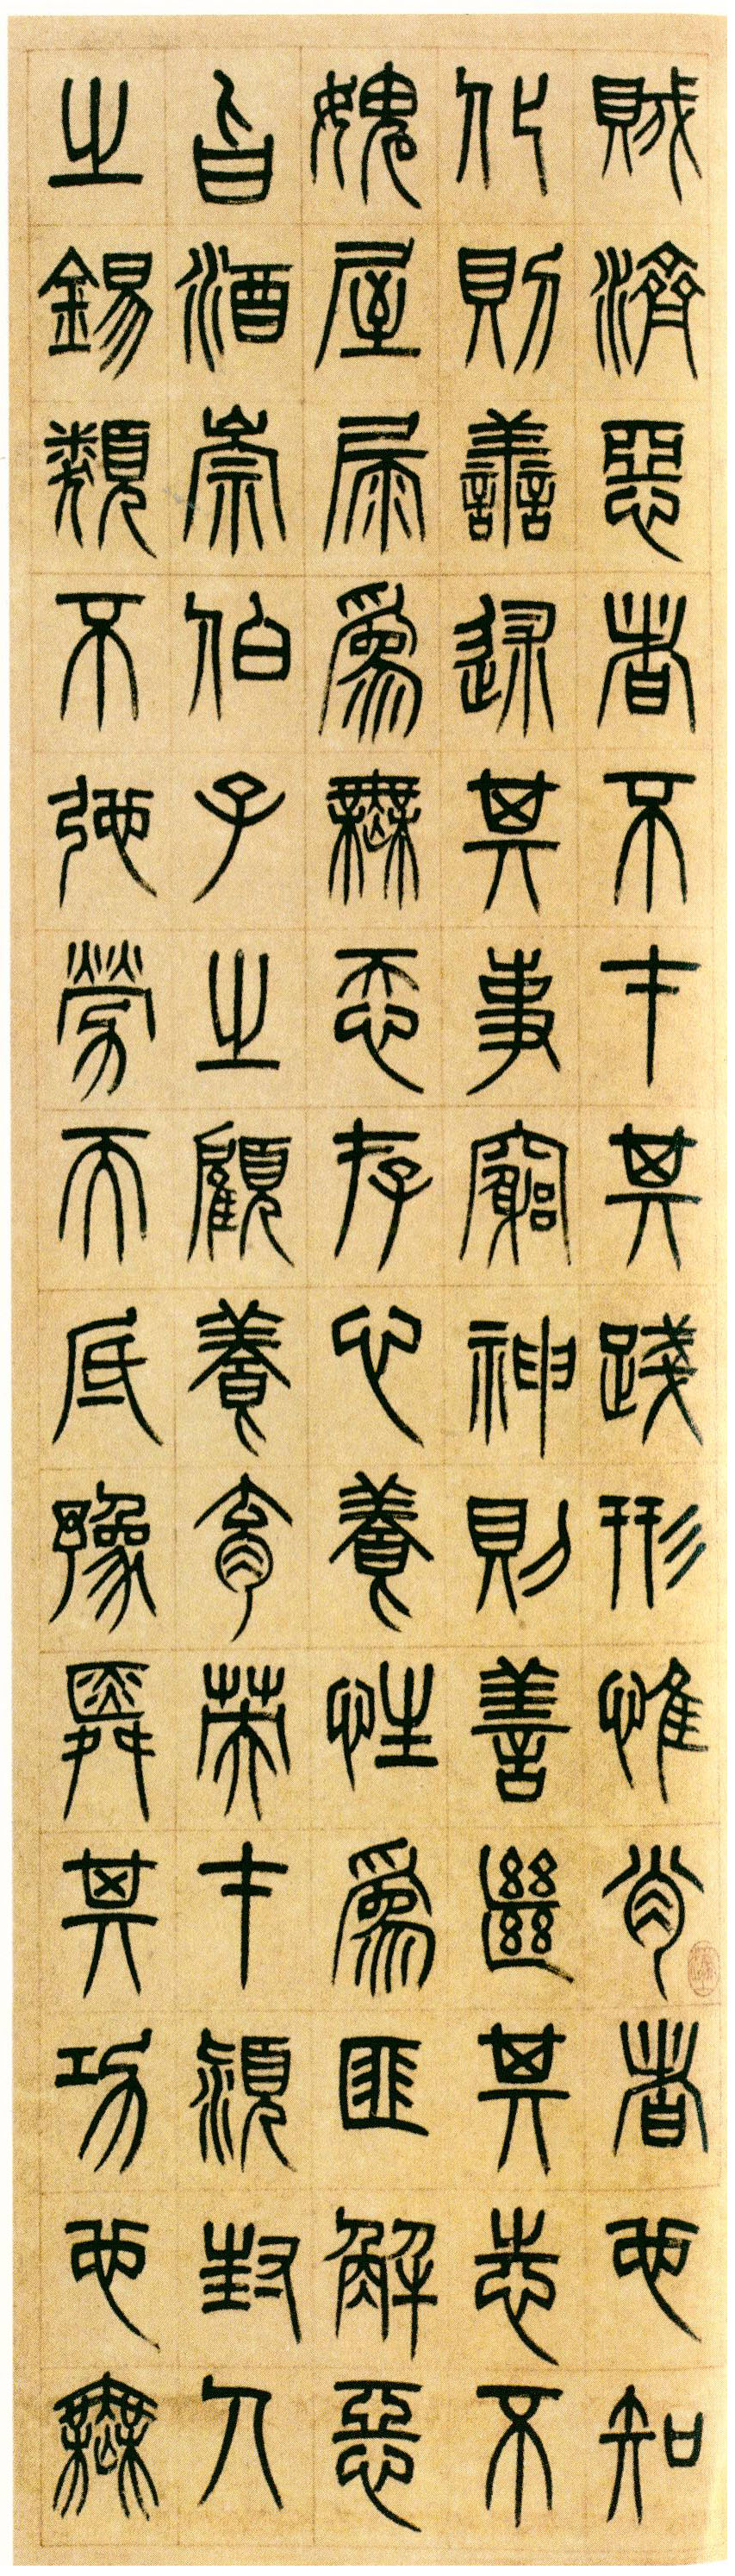 賊濟惡者不才其踐形惟肖者也知
化則譱述其事窮神則善繼其志不
媿屋屚爲無忝存心養性爲匪解惡
旨酒崇伯子之顧養育英才潁封人
之錫類不弛勞而底豫舜其功也無